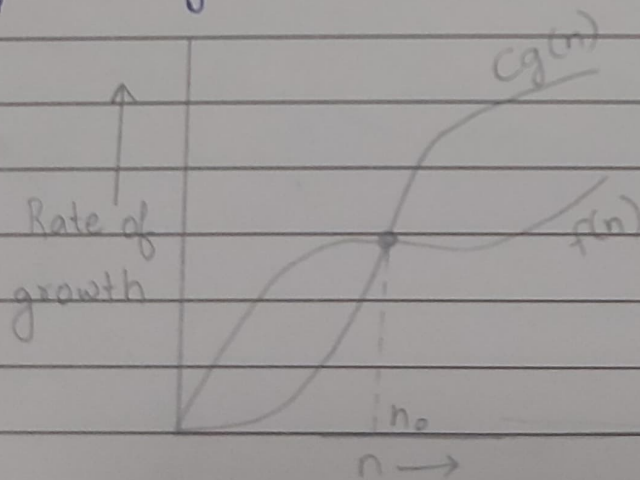 Cg(n)
Rate of
growth
f(n)
n₀
n →